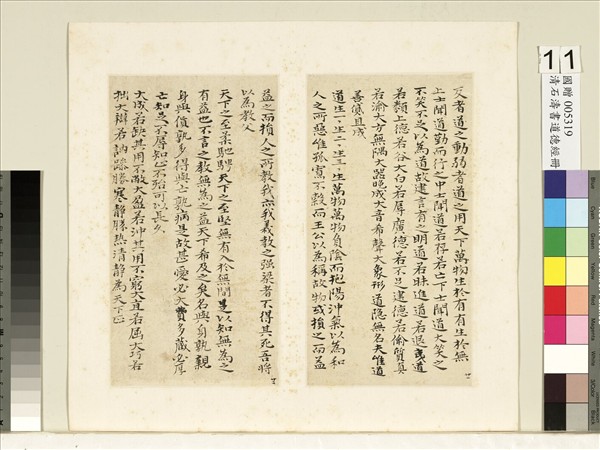 反者道之動弱者道之用天下萬物生於有有生於無
上士聞道勤而行之中士聞道若存若亡下士聞道大笑之
不笑不足以為道故建言有之明道若昧進道若退夷道
若纇上德若谷大白若辱廣德若不足建德若偷質真
若渝大方無隅大器晚成大音希聲大象形道隱無名夫唯道
善貸且成
道生一生二生三生萬物萬物負陰而抱陽沖氣以為和
人之所惡唯孤寡不穀而王公以為稱故物或損之而益
益之而損人之所教我亦我義教之强梁者不得其死吾將
以為教父
天下之至柔馳騁天下之至堅無有入於無間是以知無為之
有益也不言之教無為之益天下希及之矣名與身孰親
身與貨孰多得與亡孰病是故甚愛必大費多藏必厚
亡知足不辱知止不殆可以長久
大成若缺其用不敝大盈若沖其用不窮大直若屈大巧若
拙大辯若訥躁勝寒靜勝熱清靜為天下正
11
國贈 005319
清石濤書道德經冊
Blue
Cyan
Green
Yellow
Red
Magenta
White
3/Color
Black